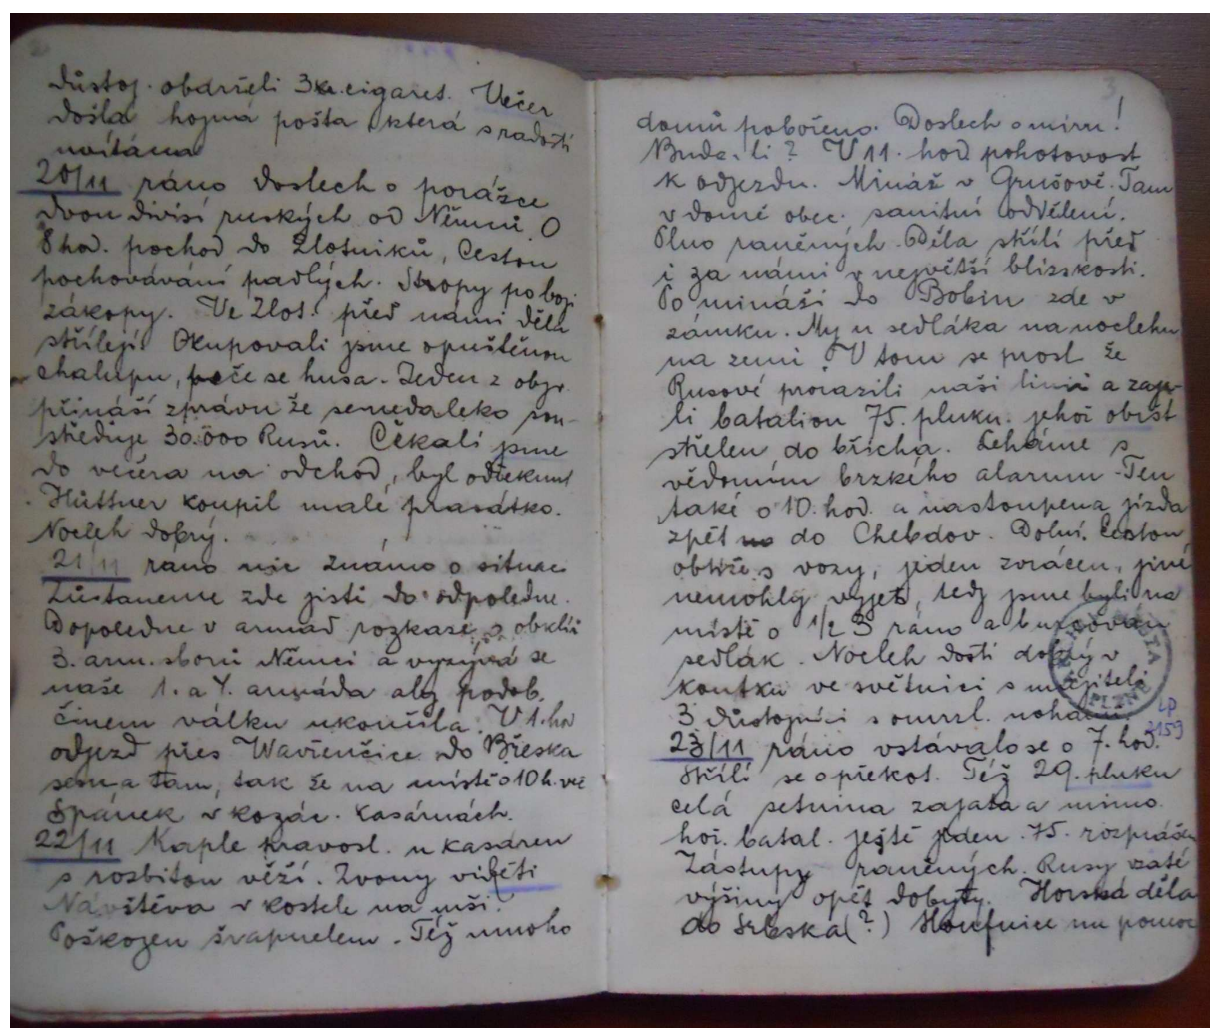 2
důstoj. obdrželi 3 cigaret. Večer
došla hojná pošta která s radostí
uvítána
20/11 ráno doslech o porážce
dvou divisí ruských od Němců. O
8 hod. pochod do Zlotniků, Cestou
pochovávání padlých. Stopy po boji
zákopy. Ve Zlot. před námi děla
střílejí. Okupovali jsme opuštěnou
chalupu, peče se husa. Jeden z
přináší zprávu že se nedaleko sou-
střeďuje 30.000 Rusů. Čekali jsme
do večera na odchod, byl odřeknut
Hüttner koupil malé prasátko.
Nocleh dobrý.
21/11 ráno nic známo o situaci
Zůstaneme zde jistě do odpoledne.
Dopoledne v armád rozkase, o obklíč
3. arm. sborů Němci a vyzývá se
naše 1. a 4. armáda aby podob.
činem válku ukončila. V 1. hod
odjezd přes Wavřenčice do Břeska
sem a tam, tak že na místě o 10 h. več
Spánek v kozác. kasárnách.
22/11 Kaple pravosl. u kasáren
s rozbitou věží. Zvony viděti
Návštěva v kostele na mši.
Poškozen švapnelem. Též mnoho
3
domů pobořeno. Doslech o míru!
Bude-li? V 11. hod pohotovost
k odjezdu. Mináž v Grušově. Tam
v domě obec. sanitní oddělení.
Plno raněných. Děla střílí před
i za námi v největší blízkosti.
Po mináži do Bobin zde v
zámku. My u sedláka na noclehu
na zemi. V tom se prosl. že
Rusové prorazili naši linii a zaja-
li batalion 75. pluku. jehož obrst
střelen do břicha. Leháme s
vědomím brzkého alarmu - Ten
také o 10. hod. a nastoupena jízda
zpět do Chebdov. Dolní. Cestou
obtíže s vozy, jeden zvrácen, jiné
nemohly vyjet, tedy jsme byli na
místě o 1/2 3 ráno a burcován
sedlák. Nocleh dosti dobrý v
koutku ve světnici s majiteli
3 důstojníci s omrzl. nohama
23/11 ráno vstávalo se o 7. hod.
Střílí se opřekot. Též 29. pluku
celá setnina zajata a mimo
hoř. batal. ještě jeden. 75. rozprášen
Zástupy raněných. Rusy vzaté
výšiny opět dobyty. Horská děla
do Srbska(?) Houfnice nu pomoc
ARCHIV MĚSTA PLZNĚ
LP
2159